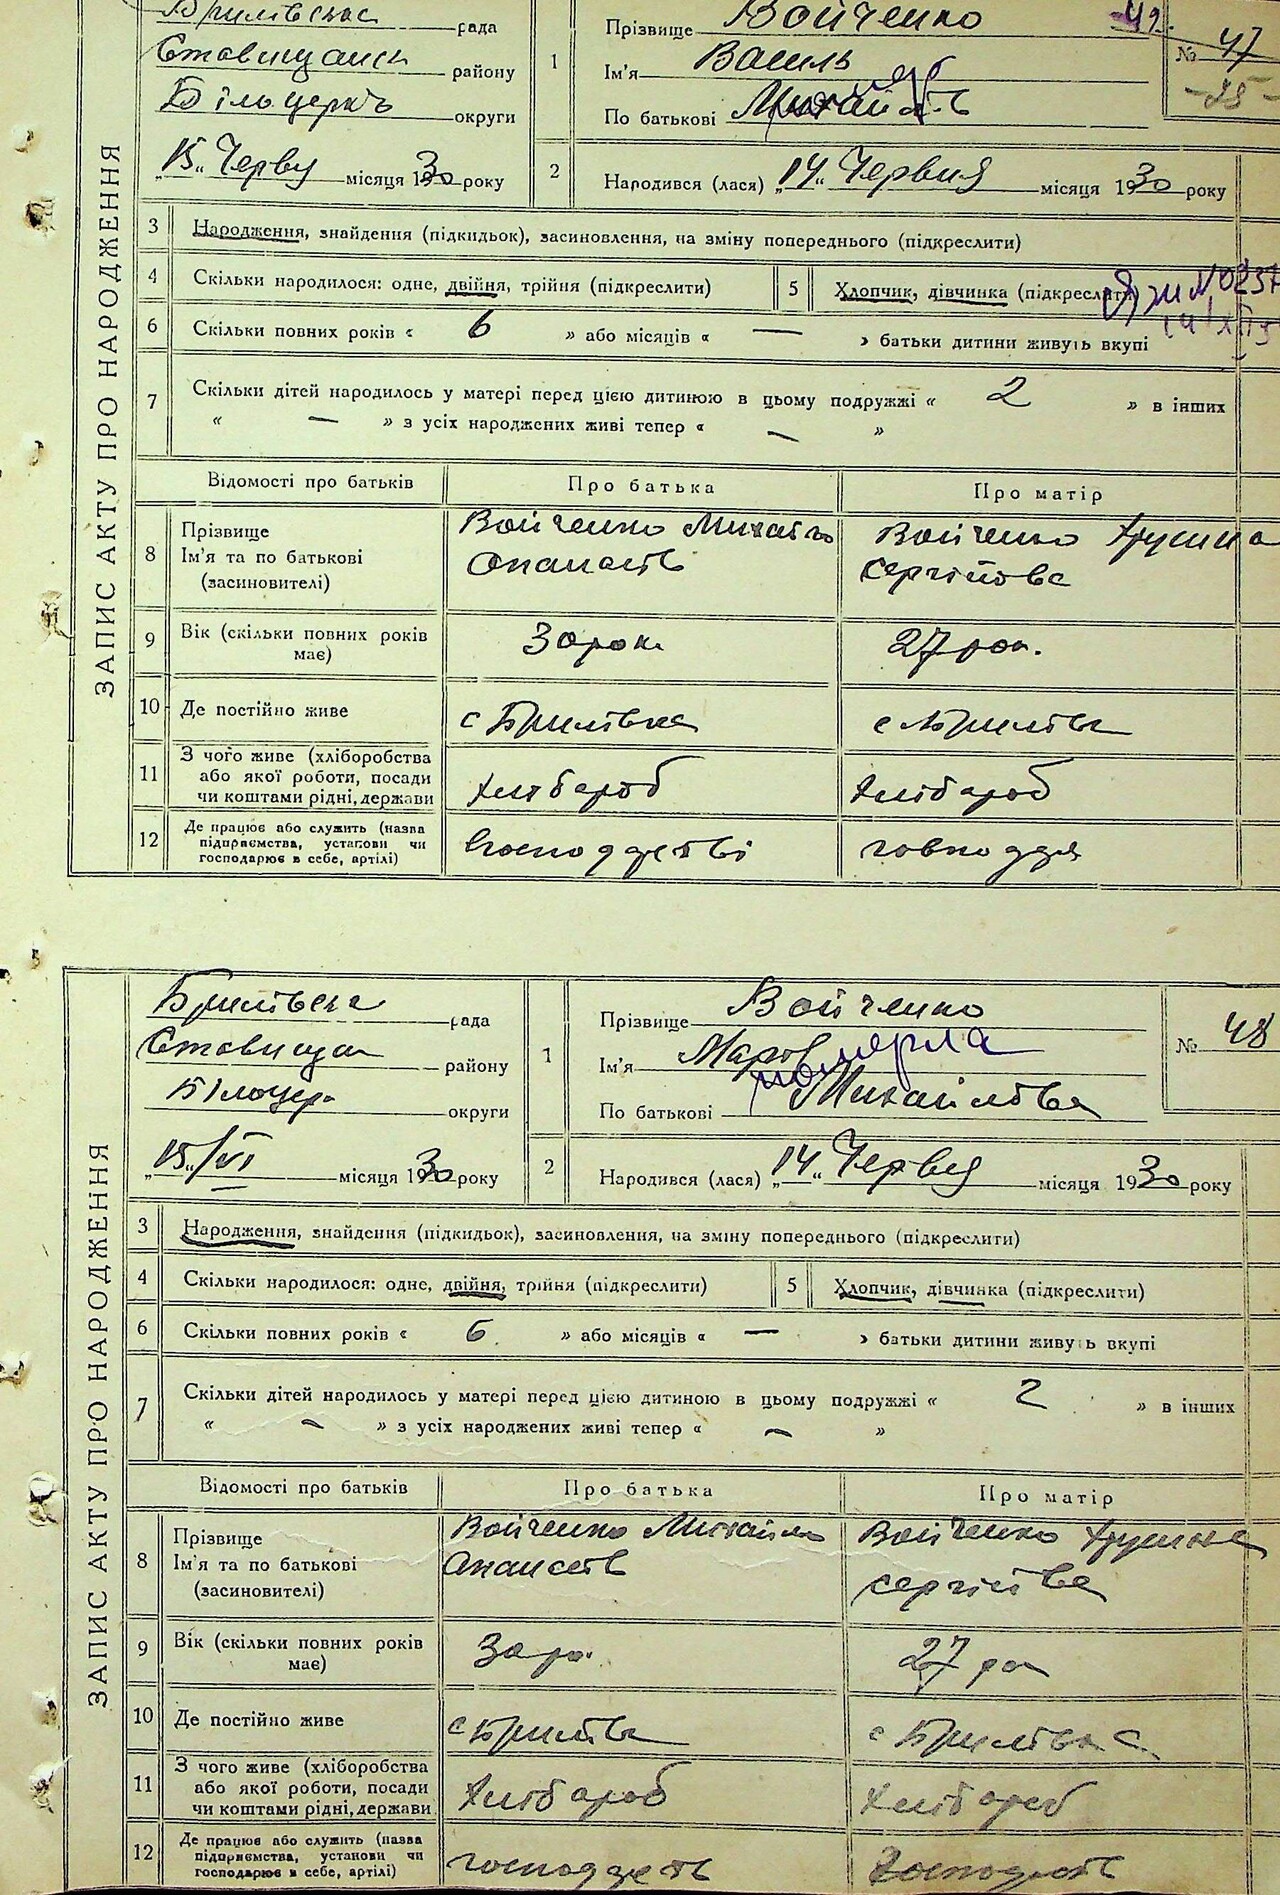 Брилівська рада
Ставищанськ району
Білоцеркв округи
„15„ Червн місяця 1930 року
ЗАПИС АКТУ ПРО НАРОДЖЕННЯ
1
Прізвище Войченко
Ім'я Василь
По батькові
№ 47
2
Народився (лася) „14„ Червня місяця 1930 року
3 Народження, знайдення (підкидьок), засиновлення, на зміну попереднього (підкреслити)
4 Скільки народилося: одне, двійня, трійня (підкреслити)
5 Хлопчик, дівчинка (підкреслити)
6 Скільки повних років « 6 » або місяців « — » батьки дитини живуть вкупі
7 Скільки дітей народилось у матері перед цією дитиною в цьому подружжі « 2 » в інших
« — » з усіх народжених живі тепер « — »
Відомості про батьків Про батька Про матір
8 Прізвище
Ім'я та по батькові
(засиновителі)
Войченко Михайло
Опанасів
Войченко Хрусина
Сергійова
9 Вік (скільки повних років
має)
30 рок.
27 рок.
10 Де постійно живе с Брилівка с Брилівка
11 З чого живе (хліборобства
або якої роботи, посади
чи коштами рідні, держави
Хлібороб Хлібороб
12 Де працює або служить (назва
підприємства, установи чи
господарює в себе, артілі)
ЗАПИС АКТУ ПРО НАРОДЖЕННЯ
Брилівська рада
Ставищан району
Білоцерк округи
„15„/VI місяця 1930 року
1
Прізвище Войченко
Ім'я
померла
По батькові Михайлівна
№ 48
2
Народився (лася) „14„ Червня місяця 1930 року
3 Народження, знайдення (підкидьок), засиновлення, на зміну попереднього (підкреслити)
4 Скільки народилося: одне, двійня, трійня (підкреслити)
5 Хлопчик, дівчинка (підкреслити)
6 Скільки повних років « 6 » або місяців « — » батьки дитини живуть вкупі
7 Скільки дітей народилось у матері перед цією дитиною в цьому подружжі « 2 » в інших
« — » з усіх народжених живі тепер « — »
Відомості про батьків Про батька Про матір
8 Прізвище
Ім'я та по батькові
(засиновителі)
Войченко Михайло
Опанасів
Войченко Хрусина
Сергіівна
9 Вік (скільки повних років
має)
30 ро.
27 ро
10 Де постійно живе с Брилівка с Брилівка
11 З чого живе (хліборобства
або якої роботи, посади
чи коштами рідні, держави
Хлібороб Хлібороб
12 Де працює або служить (назва
підприємства, установи чи
господарює в себе, артілі)